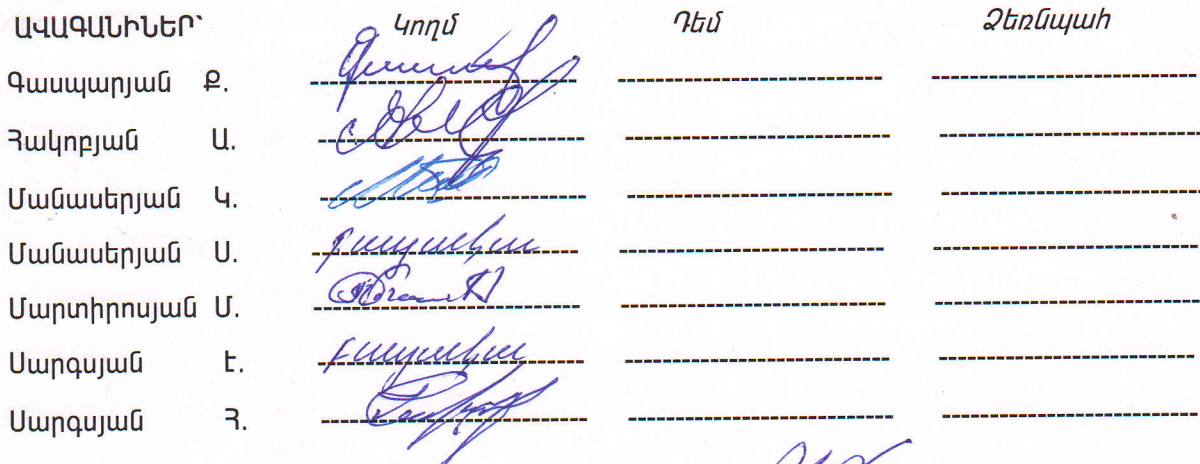 ԱՎԱԳԱՆԻՆԵՐ՝ Կողմ Դեմ Ձեռնպահ
Գասպարյան Ք.
Հակոբյան Ա.
Մանասերյան Կ.
Մանասերյան Ս. բացակա
Մարտիրոսյան Մ.
Սարգսյան Է. բացակա
Սարգսյան Հ.